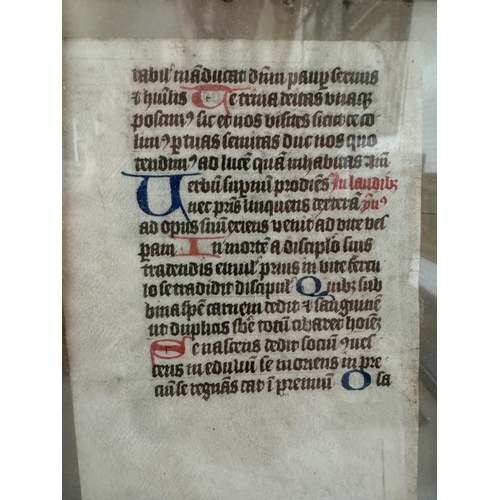 tabil' mãducat dñm paup seruus
& hũilis Te trina deitas vnaqꝫ
poscimꝰ sic et nos visites sicut te co
limꝰ p tuas semitas duc nos quo
tendimꝰ ad lucẽ quã inhabitas
Verbũ supnũ prodiẽs In laudibꝫ
nec pris linquens dexterã
ad opus suũ exiens venit ad vite ves
peram In mortẽ a discipulo suis
tradendus emul' prius in vite fercu
lo se tradidit discipul' Quibꝫ sub
bina spẽ carnem dedit & sanguinẽ
ut duplicis sbẽ totũ cibaret hoiẽꝫ
Se nascens dedit sociũ ꝯues
cens in eduliũ se moriens in pre
ciũ se regnãs dat ĩ premiũ O sa